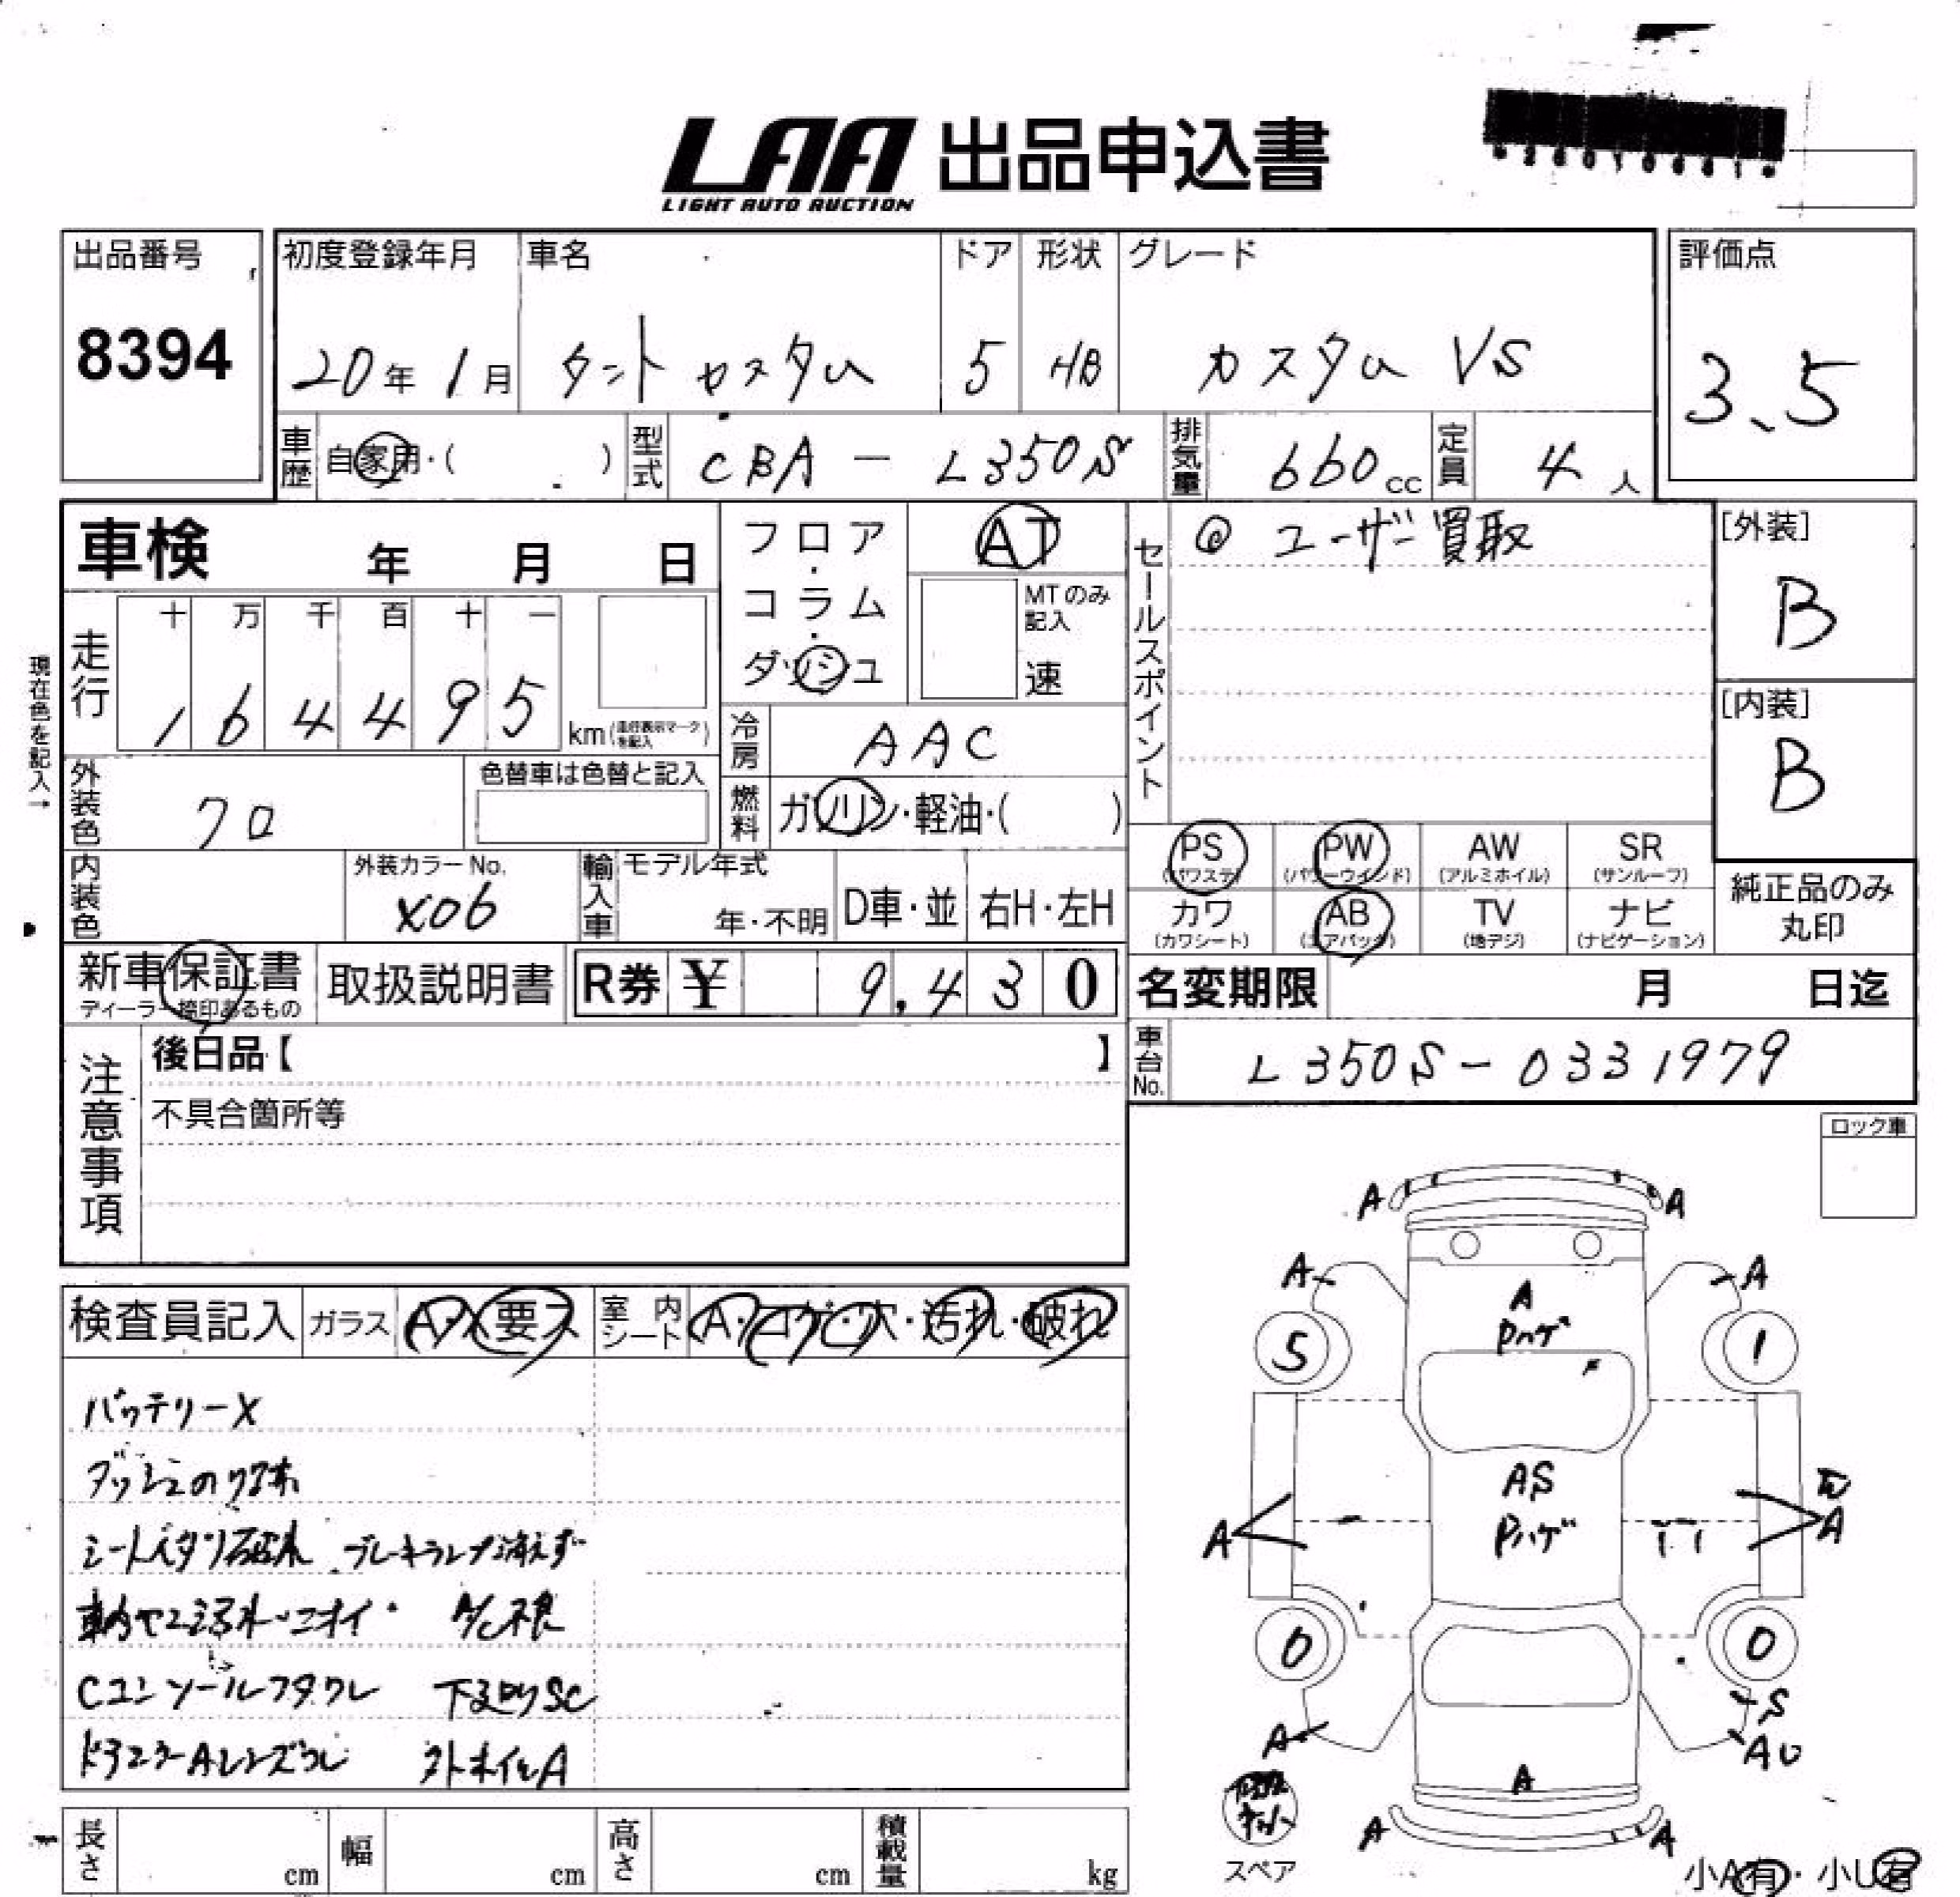 LAA 出品申込書
LIGHT AUTO AUCTION
出品番号
8394
初度登録年月 車名 ドア 形状 グレード
20年 1月 タント カスタム 5 HB カスタム VS
評価点
3.5
車歴 自家用・( ) 型式 CBA - L350S 排気量 660cc 定員 4人
車検 年 月 日
フロア・コラム・ダッシュ
AT
MTのみ記入
速
セールスポイント
◎ ユーザー買取
[外装]
B
[内装]
B
現在色を記入→
走行
十 万 千 百 十 一
1 6 4 4 9 5
km(走行表示マークを記入)
冷房 AAC
外装色 クロ
色替車は色替と記入
燃料 ガソリン・軽油・( )
内装色
外装カラーNo.
X06
輸入車 モデル年式
年・不明 D車・並 右H・左H
PS (パワステ) PW (パワーウインド) AW (アルミホイル) SR (サンルーフ)
カワ (カワシート) AB (エアバッグ) TV (地デジ) ナビ (ナビゲーション)
純正品のみ
丸印
新車保証書
ディーラー捺印あるもの
取扱説明書
R券 ¥ 9,430
名変期限 月 日迄
車台No. L350S-0331979
注意事項
後日品【 】
不具合箇所等
ロック車
検査員記入 ガラス A・ 要ス 室内シート A・コゲ・穴・汚れ・破れ
バッテリーX
ダッシュのり
シート 破れ ブレーキランプ消えず
ニオイ A/C不良
Cコンソールフタワレ 下廻りSC
ドアミラーA 外ホイルA
A A
A A
A
Pハゲ
5 1
AS
Pハゲ
A A
0 0
S
A AU
A
A A
スペア
小A有・小U有
長さ cm 幅 cm 高さ cm 積載量 kg